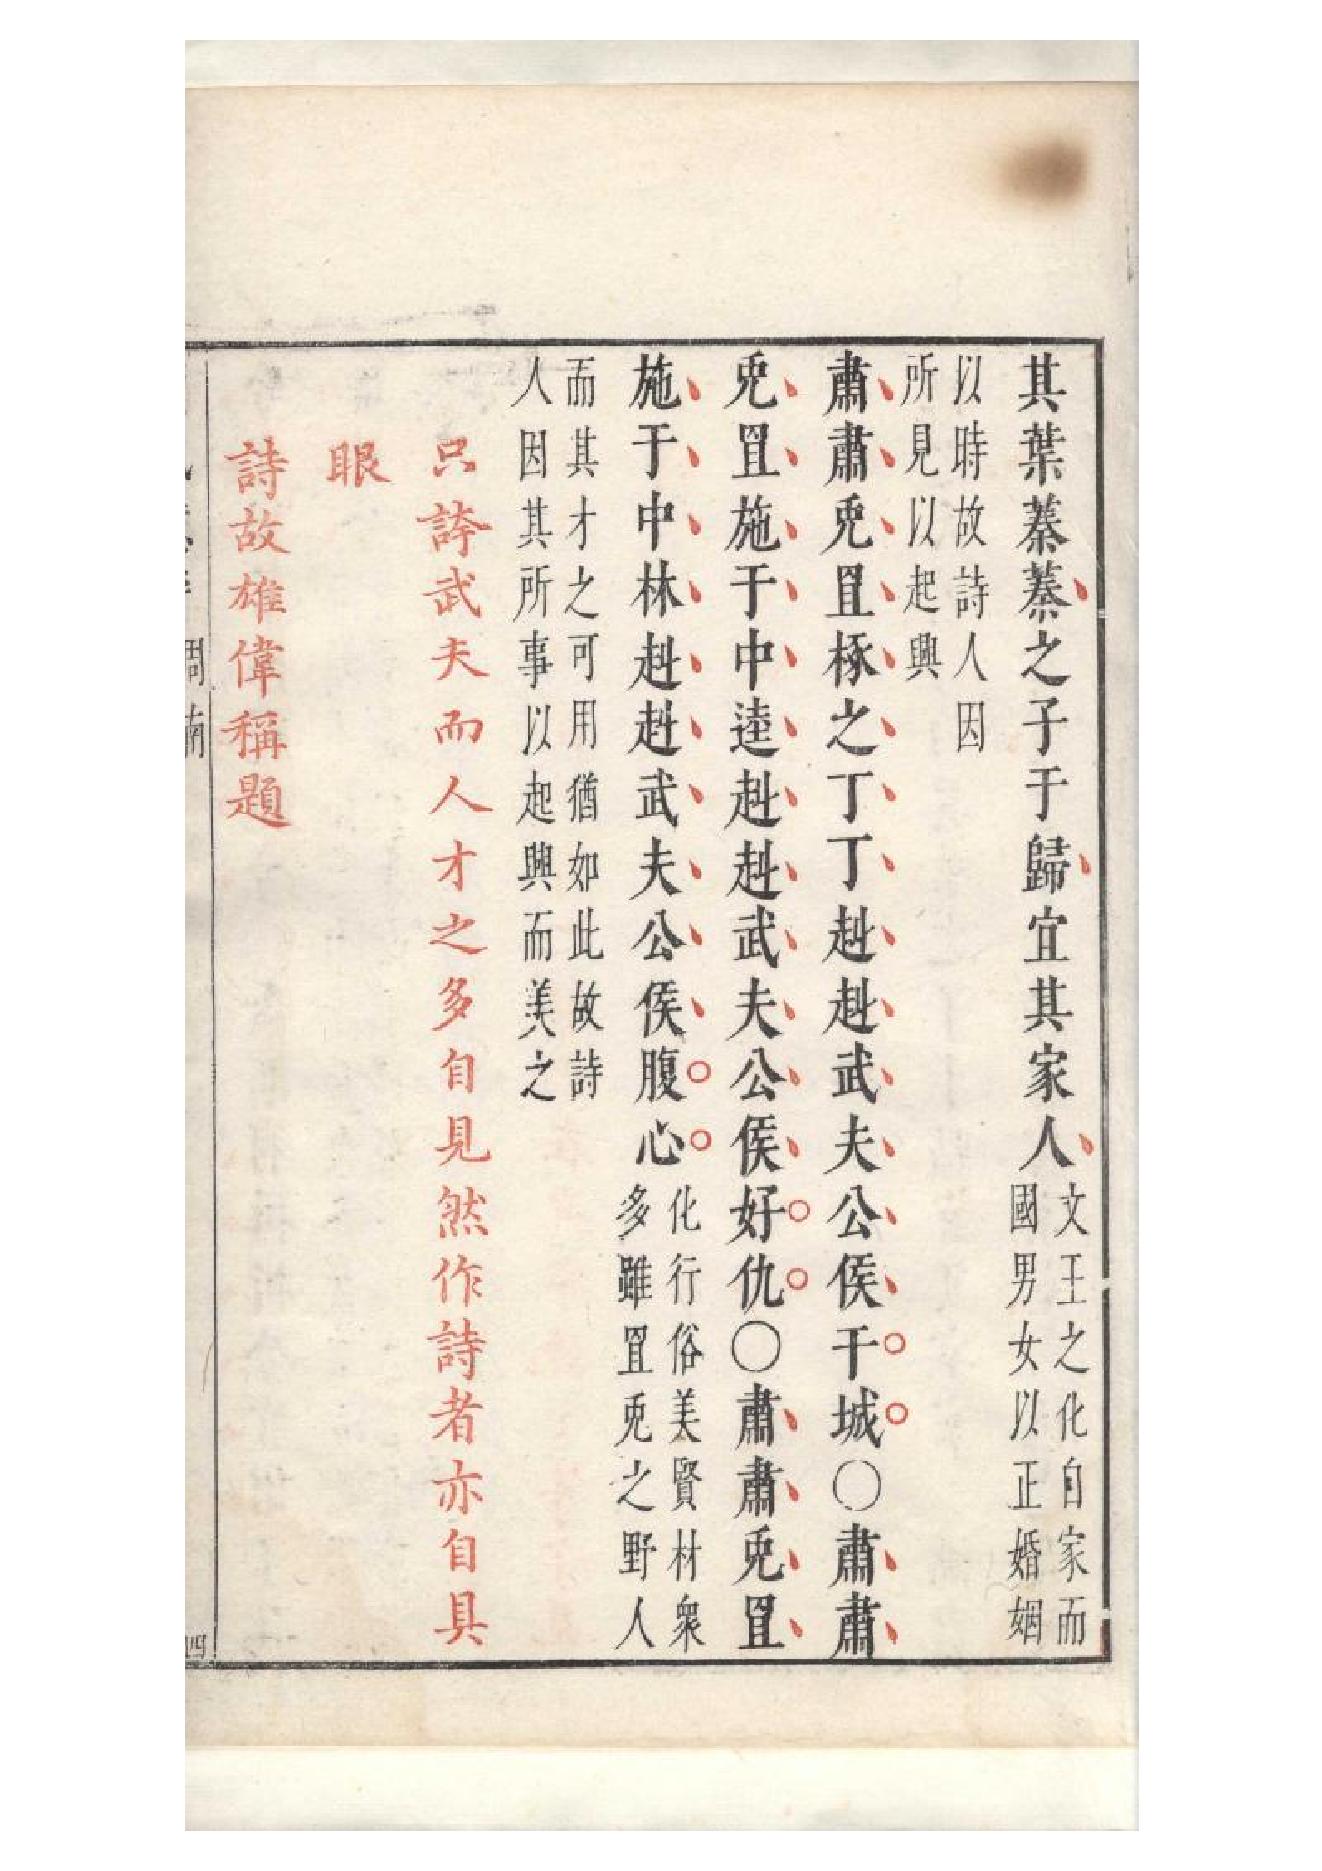 其葉蓁蓁之子于歸宜其家人文王之化自家而
國男女以正婚姻
以時故詩人因
所見以起興
肅肅兎罝椓之丁丁赳赳武夫公侯干城〇肅肅
兎罝施于中逵赳赳武夫公侯好仇〇肅肅兎罝
施于中林赳赳武夫公侯腹心化行俗美賢材衆
多雖罝兎之野人
而其才之可用猶如此故詩
人因其所事以起興而美之
只誇武夫而人才之多自見然作詩者亦自具
眼
詩故雄偉稱題
周南
四